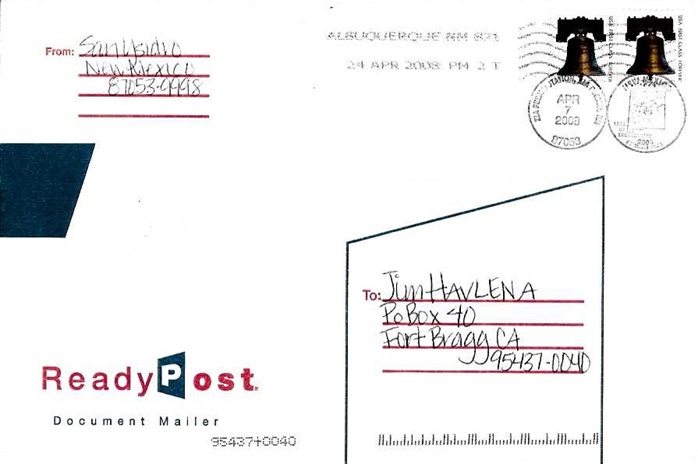 From: San Ysidro
New Mexico
87053-9998
ALBUQUERQUE NM 871
24 APR 2008 PM 2 T
USA FIRST-CLASS FOREVER
USA FIRST-CLASS FOREVER
APR
7
2008
87053
To: Jim HAVLENA
Po Box 40
Fort Bragg CA
95437-0040
ReadyPost®
Document Mailer
95437+0040